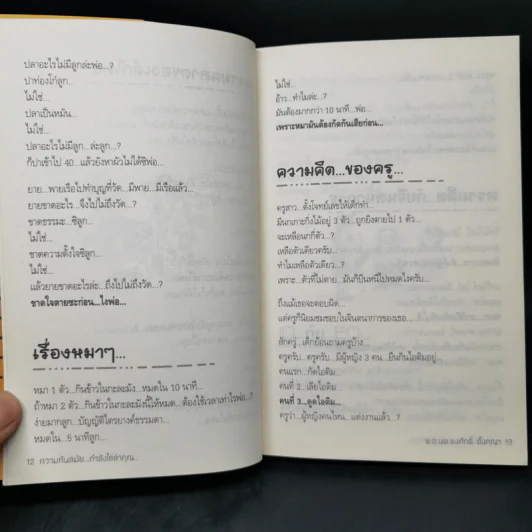 ปลาอะไรไม่มีลูกล่ะพ่อ...?
ปาท่องโก๋ลูก...
ไม่ใช่...
ปลาเป็นหมัน...
ไม่ใช่...
ปลาอะไรไม่มีลูก...ล่ะลูก...?
ก็ปาเข้าไป 40...แล้วยังหาผัวไม่ได้ซิพ่อ...
ยาย...พายเรือไปทำบุญที่วัด...มีพาย...มีเรือแล้ว...
ยายขาดอะไร...จึงไปไม่ถึงวัด...?
ขาดธรรมะ...ซิลูก...
ไม่ใช่...
ขาดความตั้งใจซิลูก...
ไม่ใช่...
แล้วยายขาดอะไรล่ะ...ถึงไปไม่ถึงวัด...?
ขาดใจตายซะก่อน...ไงพ่อ...
เรื่องหมาๆ...
หมา 1 ตัว...กินข้าวในกะละมัง...หมดใน 10 นาที...
ถ้าหมา 2 ตัว...กินข้าวในกะละมังนี้ให้หมด...ต้องใช้เวลาเท่าไรพ่อ...?
ง่ายมากลูก...บัญญัติไตรยางค์ธรรมดา...
หมดใน...5 นาทีลูก...
12 ความทันสมัย...กำลังไล่ล่าคุณ...
ไม่ใช่...
อ้าว...ทำไมล่ะ...?
มันต้องมากกว่า 10 นาที...พ่อ...
เพราะหมามันต้องกัดกันเสียก่อน...
ความคิด...ของครู...
ครูสาว...ตั้งโจทย์เลขให้เด็กทำ...
มีนกเกาะกิ่งไม้อยู่ 3 ตัว...ถูกยิงตายไป 1 ตัว...
จะเหลือนกกี่ตัว...?
เหลือตัวเดียวครับ...
ทำไมเหลือตัวเดียว...?
เพราะ...ตัวที่ไม่ตาย...มันก็บินหนีไปหมดไงครับ...
ถึงแม้เธอจะตอบผิด...
แต่ครูก็นิยมชมชอบในจินตนาการของเธอ...
สักครู่...เด็กย้อนถามครูบ้าง...
ครูครับ...ครูครับ...มีผู้หญิง 3 คน...ยืนกินไอติมอยู่...
คนแรก...กัดไอติม...
คนที่ 2...เลียไอติม...
คนที่ 3...ดูดไอติม...
ครูว่า...ผู้หญิงคนไหน...แต่งงานแล้ว...?
13